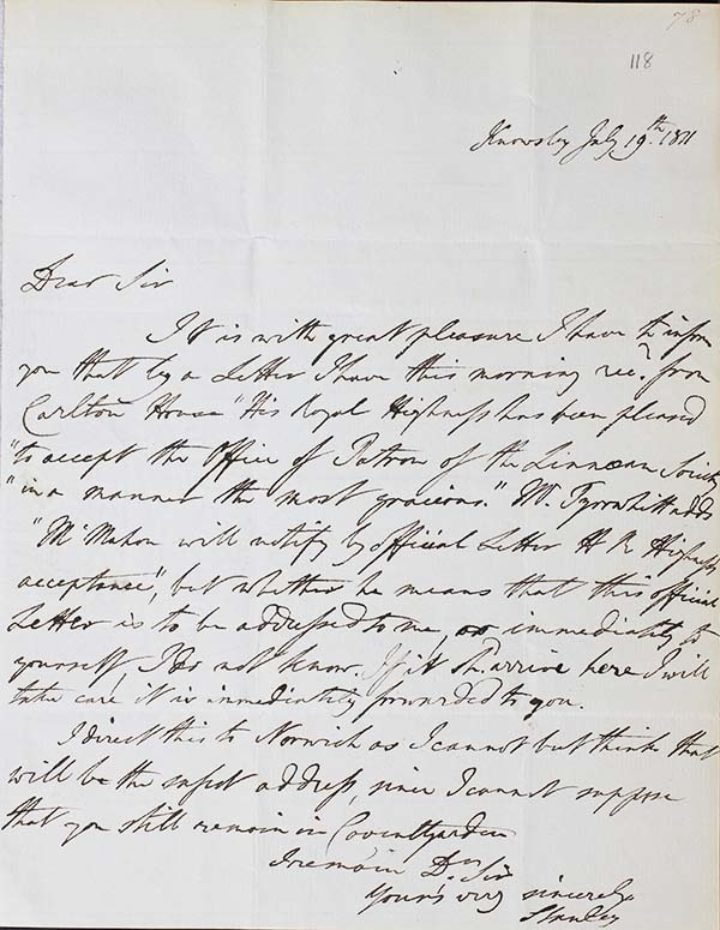 78
118
Knowsley July 19th. 1811
Dear Sir
It is with great pleasure I have to inform
you that by a Letter I have this morning rec.d from
Carlton House "His Royal Highness has been pleased
"to accept the Office of Patron of the Linnæan Society
"in a manner the most gracious." Mr. Tyrwhitt adds
"McMahon will notify by official Letter H R Highness's
acceptance", but whether he means that this official
Letter is to be addressed to me, or immediately to
yourself, I do not know. If it sh.d arrive here I will
take care it is immediately forwarded to you.
I direct this to Norwich as I cannot but think that
will be the safest address, since I cannot suppose
that you still remain in Coventgarden
I remain Dr. Sir
Your's very sincerely
Stanley